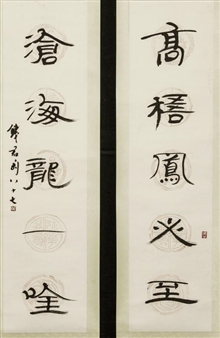 髙梧鳳必至
滄海龍一唫
八十七